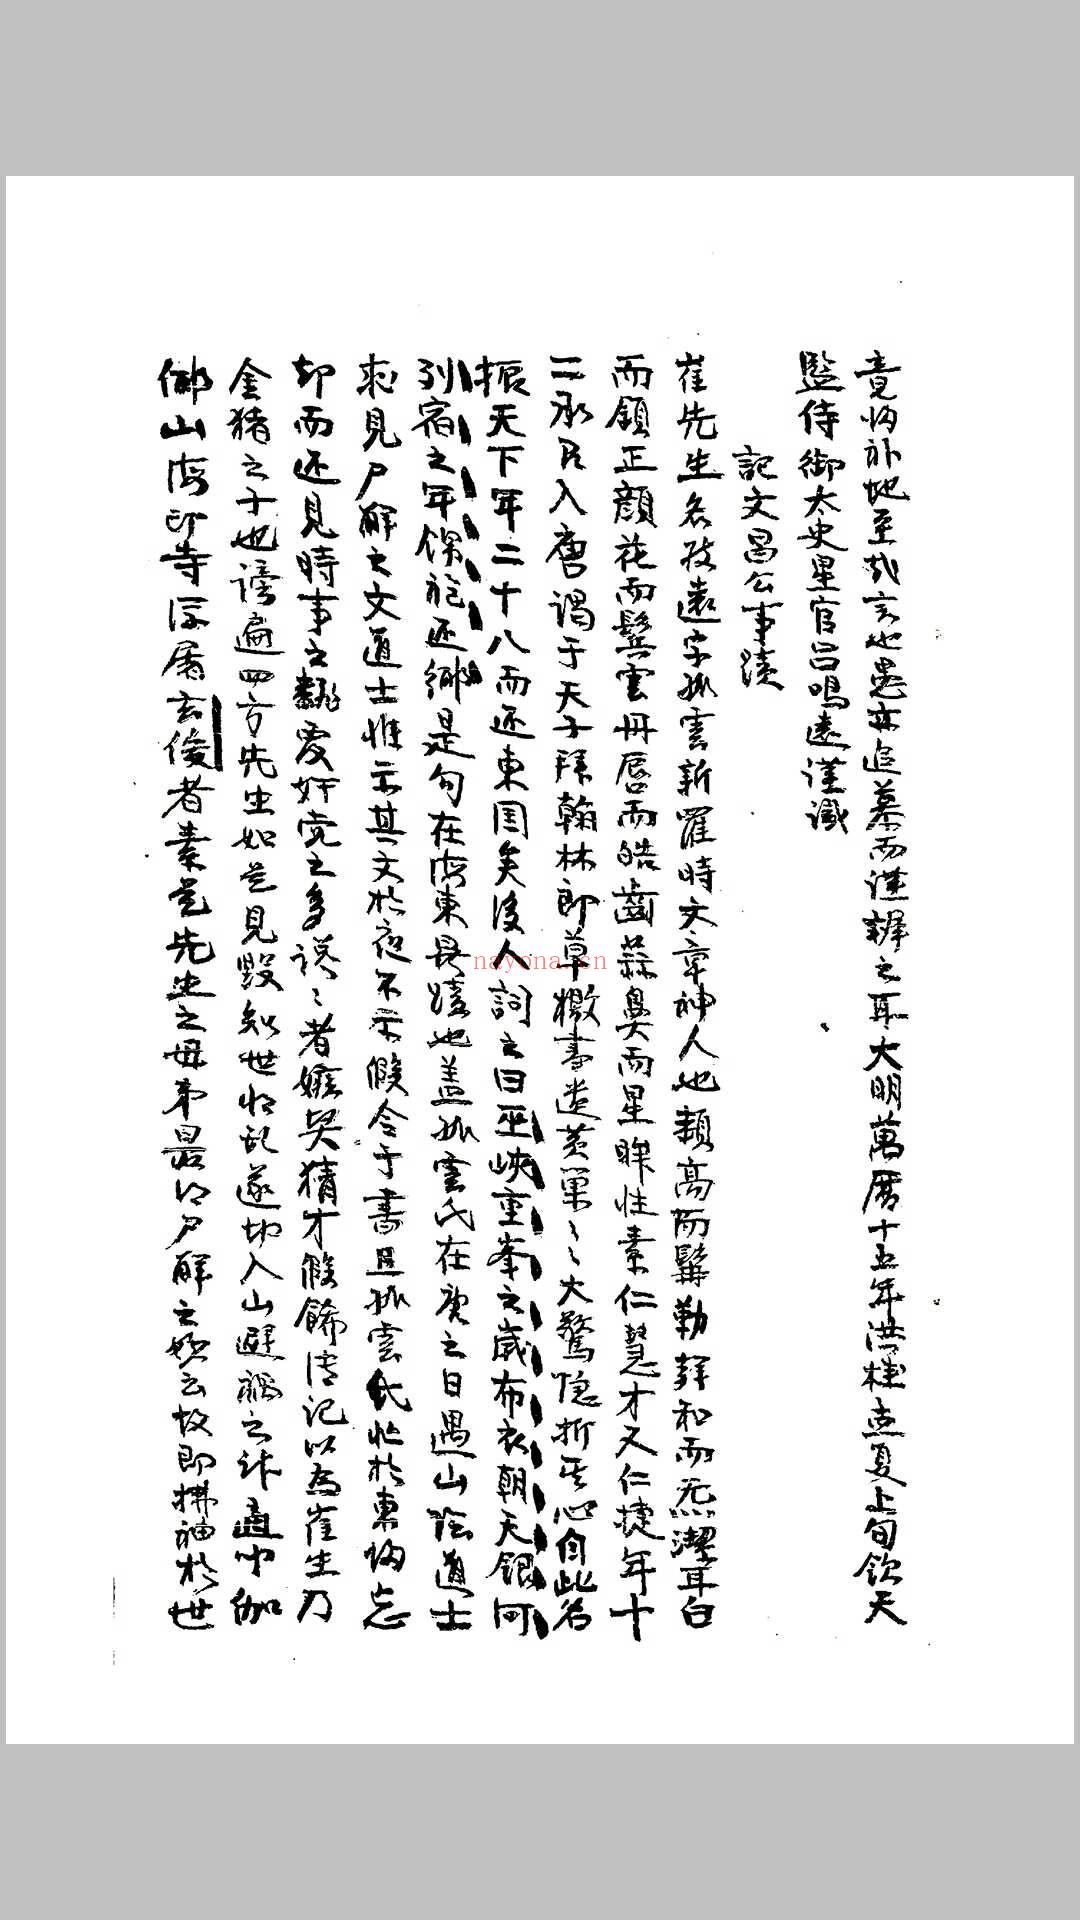 竟物补地至哉言也愚亦追慕而謹辨之耳大明萬曆十五年洪桂孟夏上旬欽天
監侍御太史星官呂鳴遠謹識
記文昌公事蹟
崔先生名致遠字孤雲新羅時文章神人也頰高而鬢勒鼻和而氣潔耳白
而額正顏花而鬂雲丹唇而皓齒蒜鼻而星眸性素仁慧才又仁捷年十
二承召入唐謁于天子拜翰林郎草檄書送黃巢〻大驚隐折其心自此名
振天下年二十八而还東国矣後人詞之曰巫峽重峯之歲布衣朝天銀河
列宿之年錦袍还鄉是句在海東是蹟也盖孤雲氏在唐之日遇山陰道士
求見尸解之文道士惟示其文於夜不示假令于書且孤雲氏忙於東歸忘
却而还見時事之翻覆奸党之多谈〻者嫉哭猜才假餙傳記以為崔生乃
金猪之子也謗遍四方先生如是見毀知世將乱遂切入山避禍之計適中伽
倻山海印寺浮屠玄俊者素是先生之母弟最得尸解之妙云故即拂袖於世